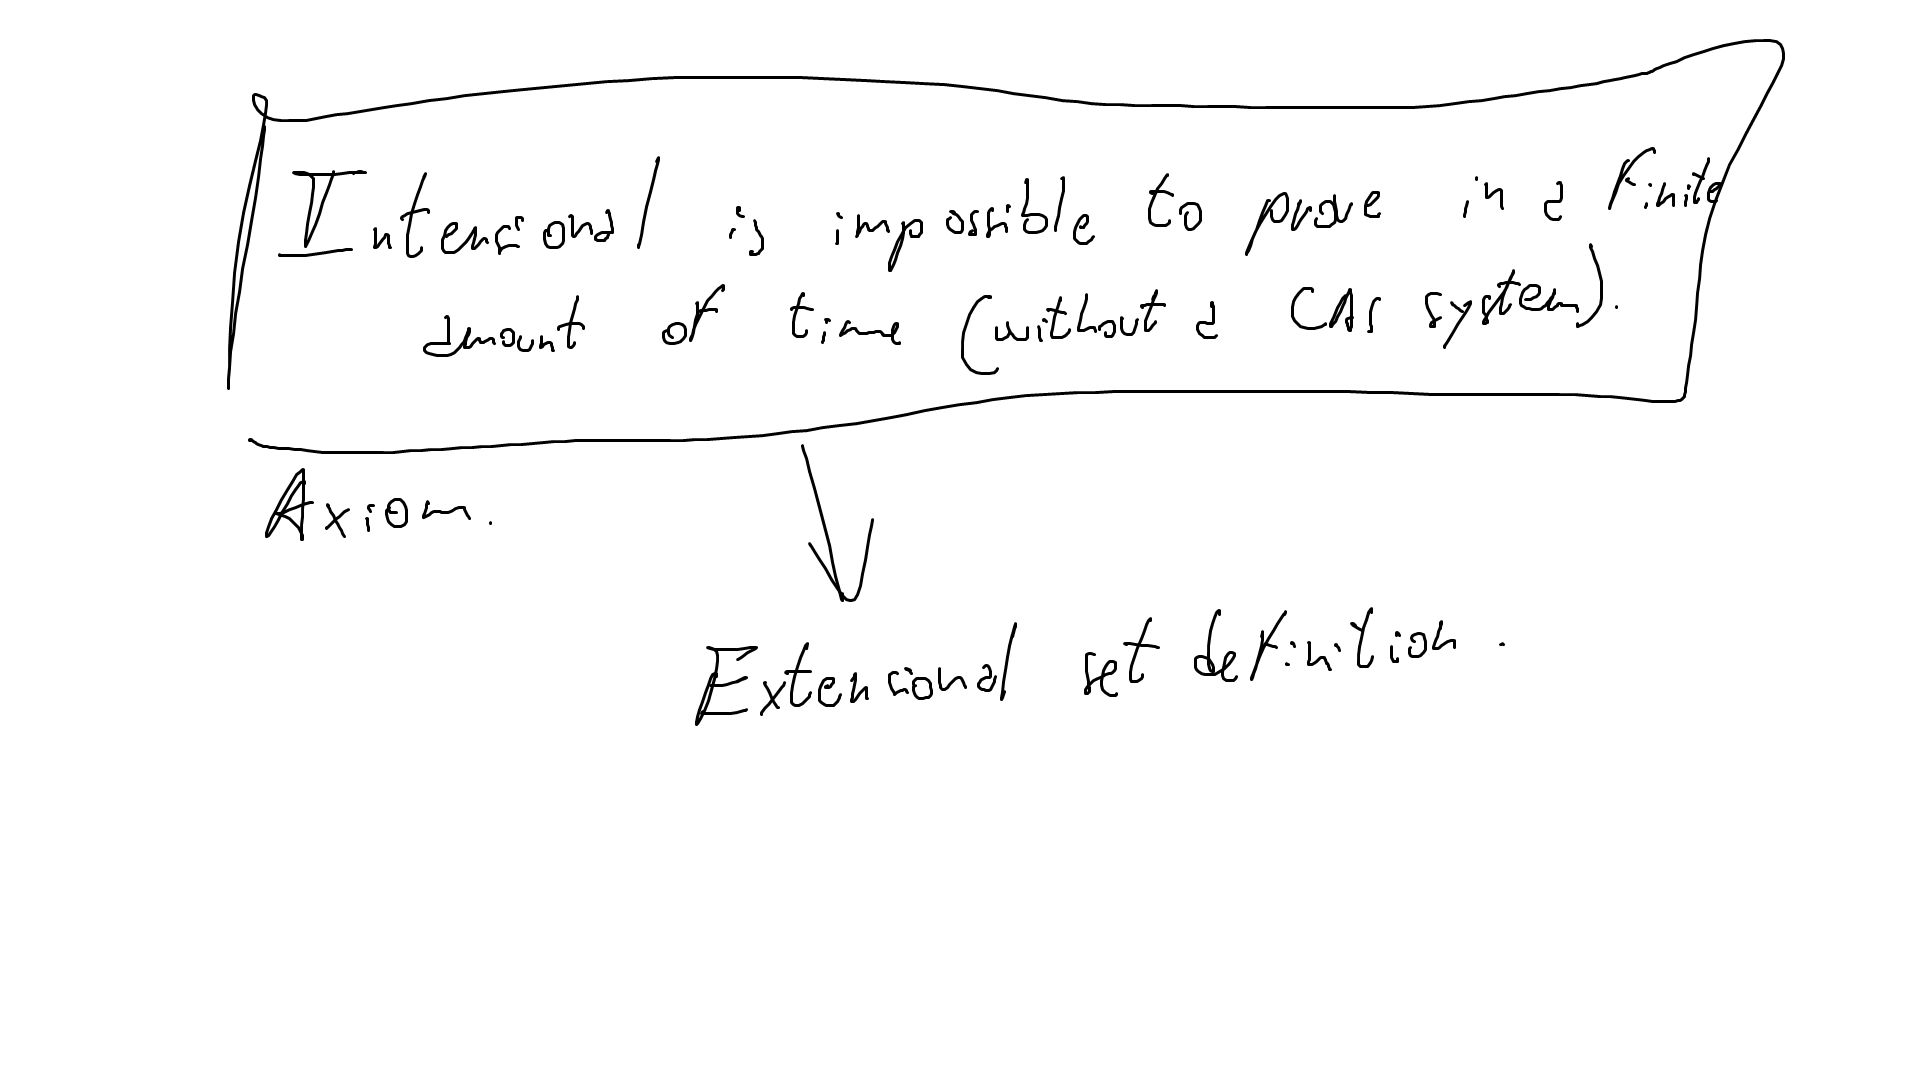 Intensional is impossible to prove in a finite
amount of time (without a CAS system).
Axiom.
Extensional set definition.